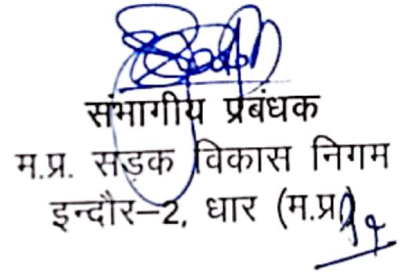 संभागीय प्रबंधक
म.प्र. सड़क विकास निगम
इन्दौर–2, धार (म.प्र.)